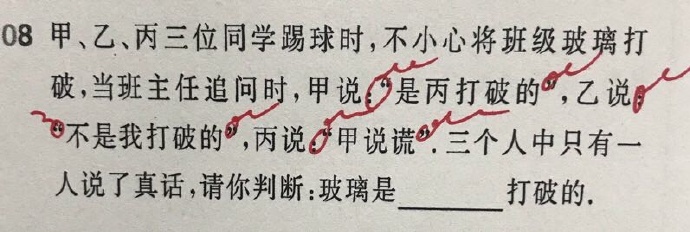 08 甲、乙、丙三位同学踢球时,不小心将班级玻璃打
破,当班主任追问时,甲说:“是丙打破的”,乙说:
“不是我打破的”,丙说:“甲说谎”.三个人中只有一
人说了真话,请你判断:玻璃是________打破的.